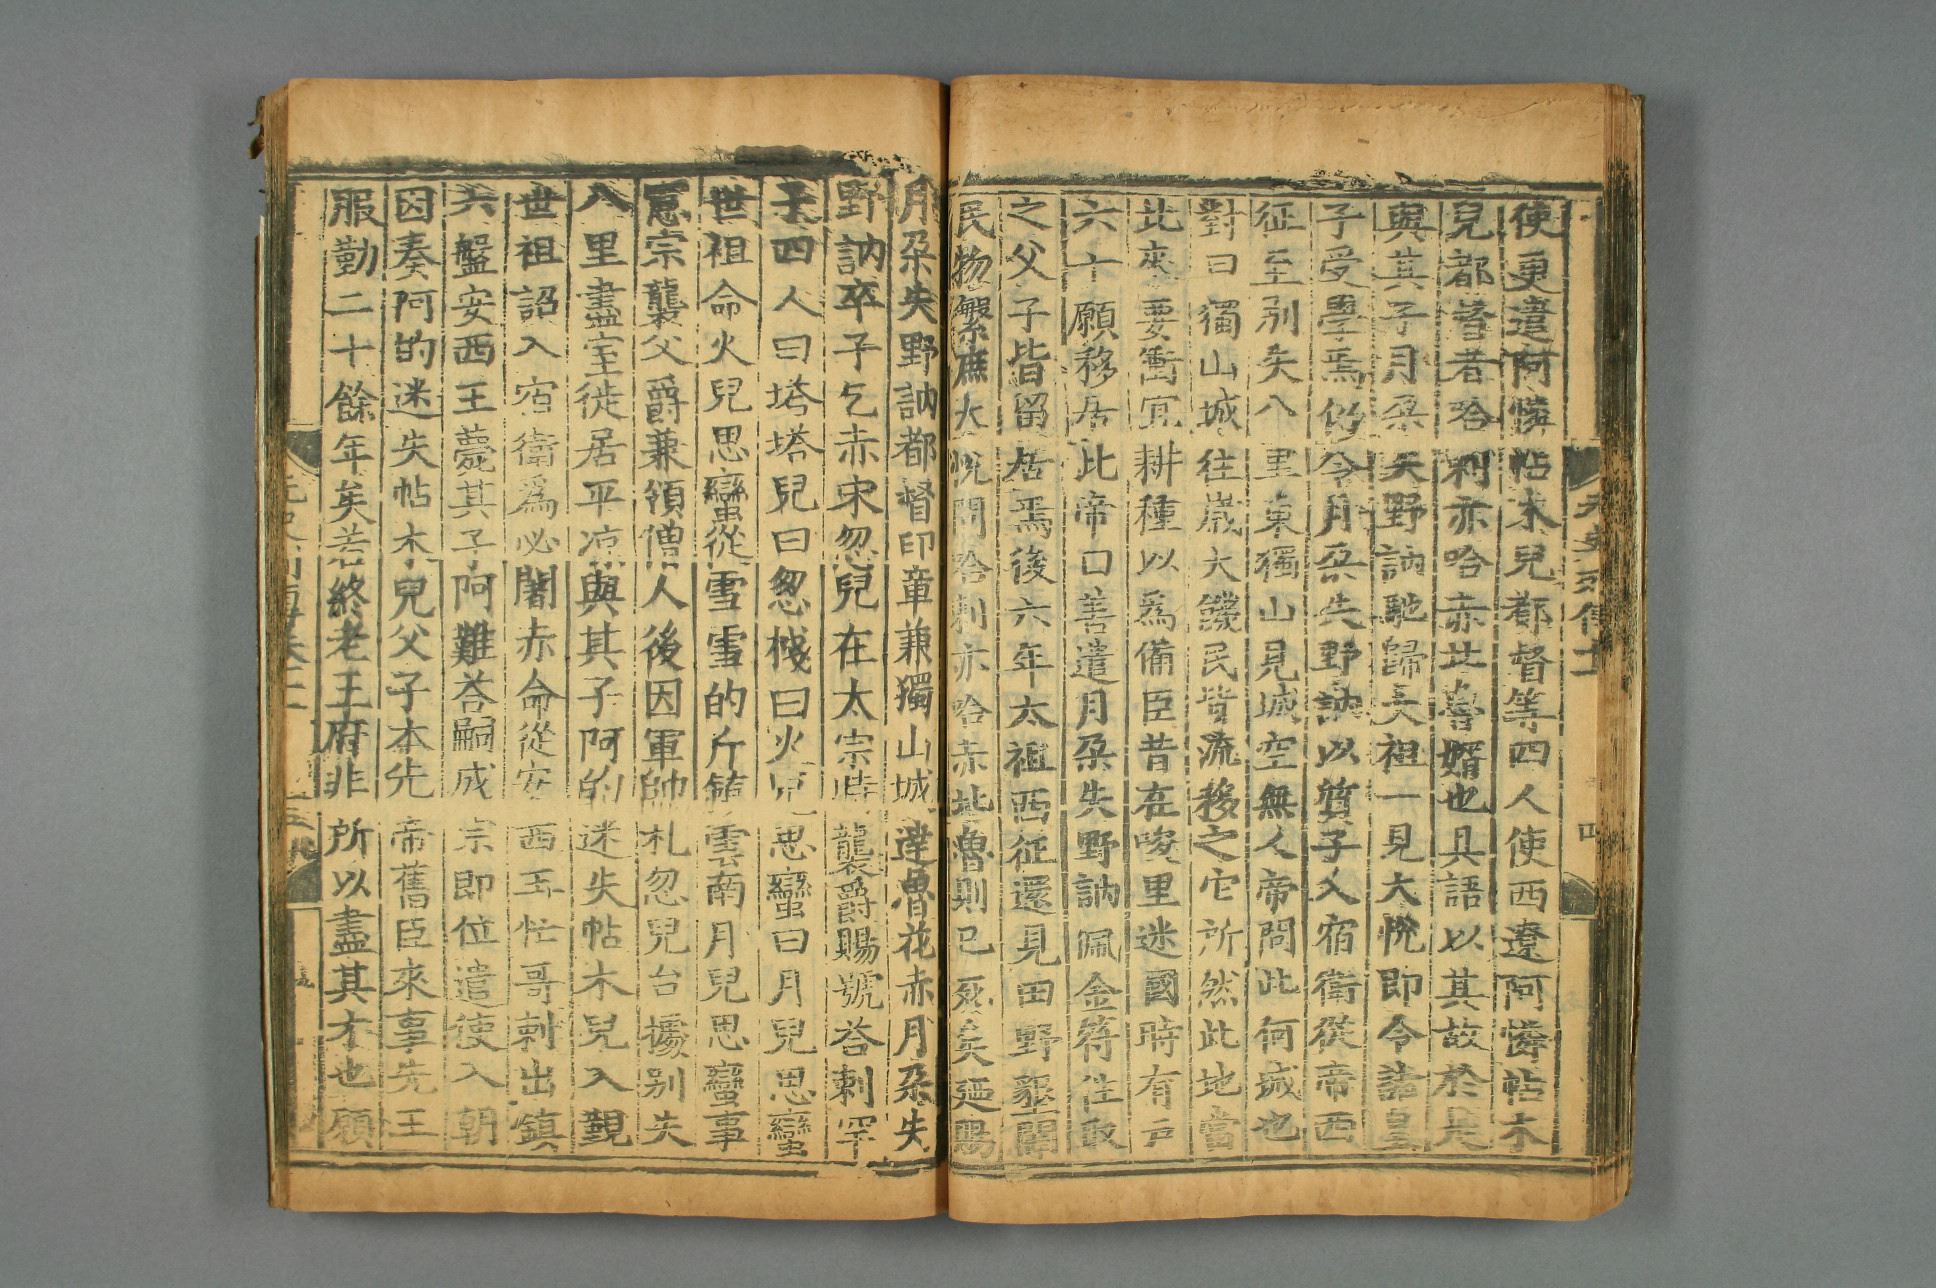 使更遣阿憐帖木兒都督等四人使西遼阿憐帖木
兒都督者哈剌亦哈赤北魯婿也具語以其故於是
與其子月朶失野訥馳歸太祖一見大悅即令諸皇
子受學焉仍令月朶失野訥以質子入宿衛從帝西
征至別失八里東獨山見城空無人帝問此何城也
對曰獨山城往歲大饑民皆流移之它所然此地當
北來要衝宜耕種以爲備臣昔在唆里迷國時有戶
六十願移居此帝曰善遣月朶失野訥佩金符往取
之父子皆留居焉後六年太祖西征還見田野墾闢
民物繁庶大悅問哈剌亦哈赤北魯則已死矣廼賜
月朶失野訥都督印章兼獨山城達魯花赤月朶失
野訥卒子乞赤宋忽兒在太宗時襲爵賜號荅剌罕
子四人曰塔塔兒曰忽棧曰火兒思蠻曰月兒思蠻
世祖命火兒思蠻從雪雪的斤鎮雲南月兒思蠻事
憲宗襲父爵兼領僧人後因軍帥札忽兒台據別失
八里盡室徙居平凉與其子阿的迷失帖木兒入覲
世祖詔入宿衛爲必闍赤命從安西王忙哥剌出鎮
六盤安西王薨其子阿難荅嗣成宗即位遣使入朝
因奏阿的迷失帖木兒父子本先帝舊臣來事先王
服勤二十餘年矣若終老王府非所以盡其才也願